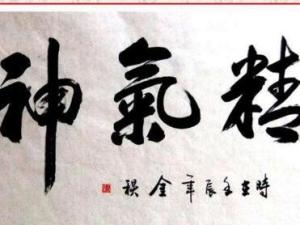 精氣神
時在壬辰年金秋